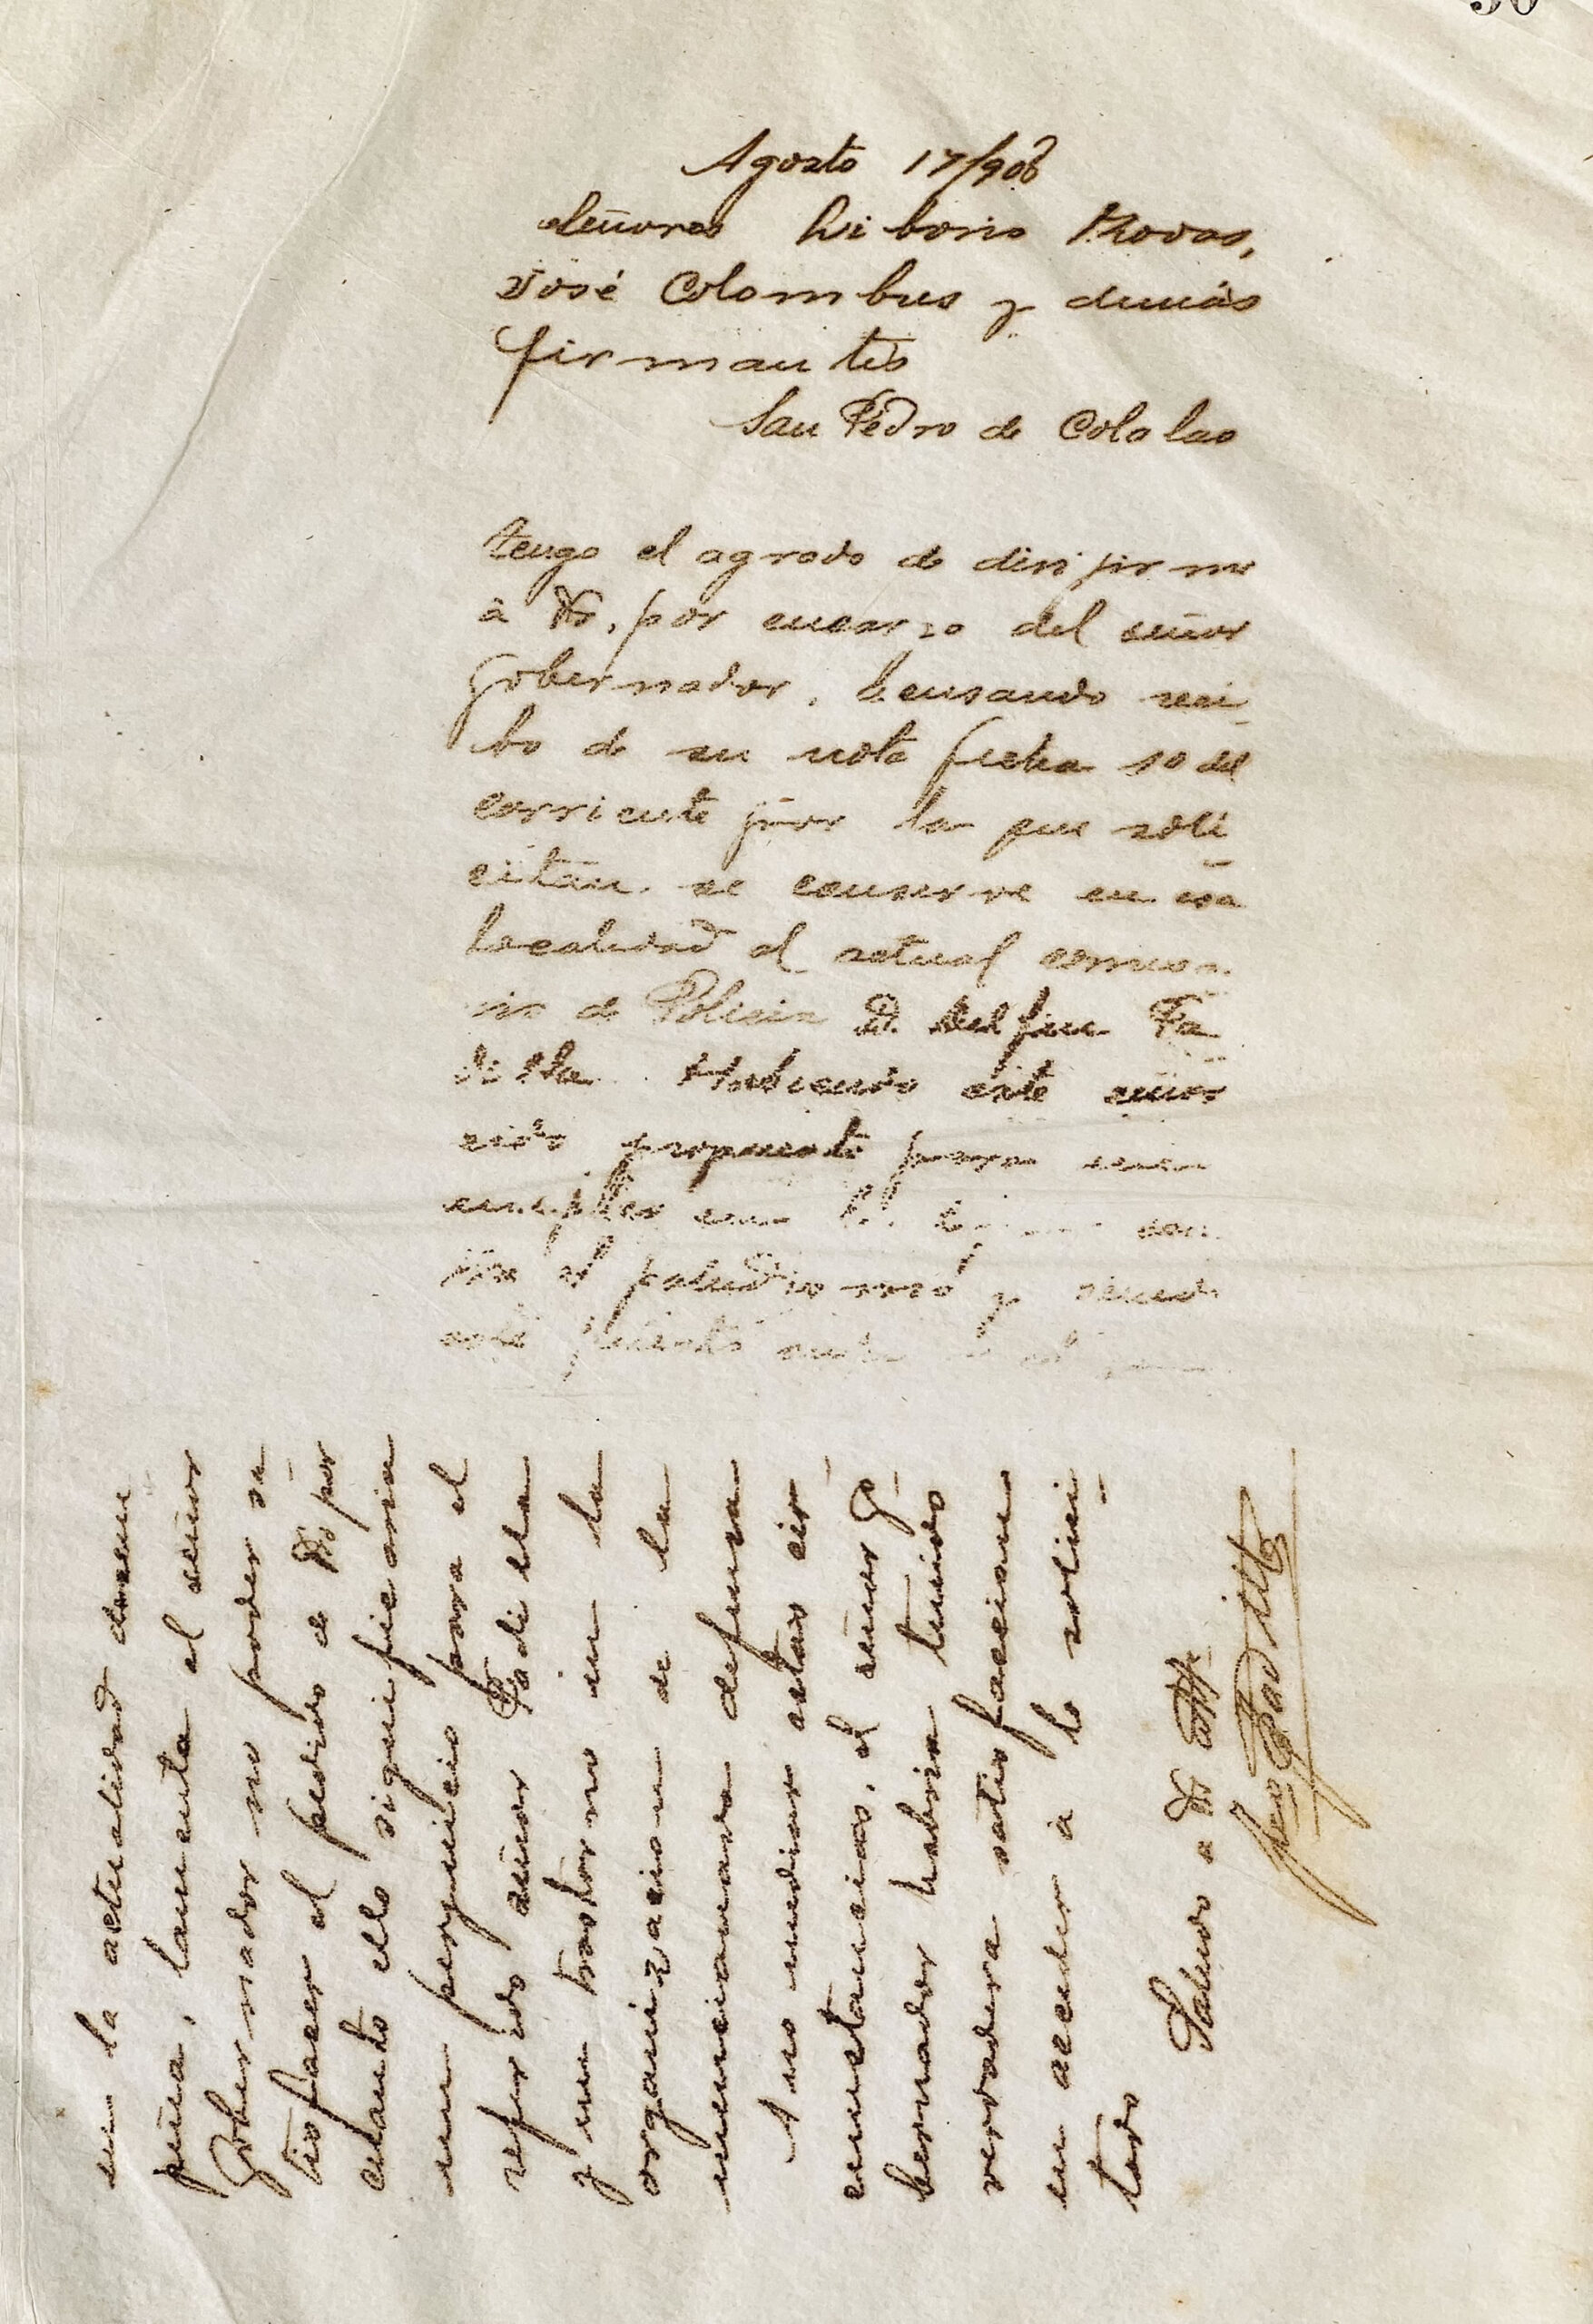 Agosto 17/908
Señores Liborio Rovas,
José Colombres y demás
firmantes
San Pedro de Colalao
tengo el agrado de dirijirme
à Vs, por encargo del señor
Gobernador, acusando reci
bo de su nota fecha 10 del
corriente por la que soli
citan se conserve en esa
localidad al actual comisa
rio de Policia D. Delfin Pa
dilla. Habiendo este señor
sido propuesto para un
empleo en la con
tra el paludismo y siendo
este puesto
en la actualidad desem
peña, lamenta el señor
Gobernador no poder sa
tisfacer el pedido de Vs por
cuanto ello significaria
un perjuicio para el
referido señor Padilla
y un trastorno en la
organizacion de la
mencionada defensa
A no mediar estas cir
cunstancias, el señor Go
bernador habria tenido
verdadera satisfaccion
en acceder à lo solici
tado
Saludo a Vs atte